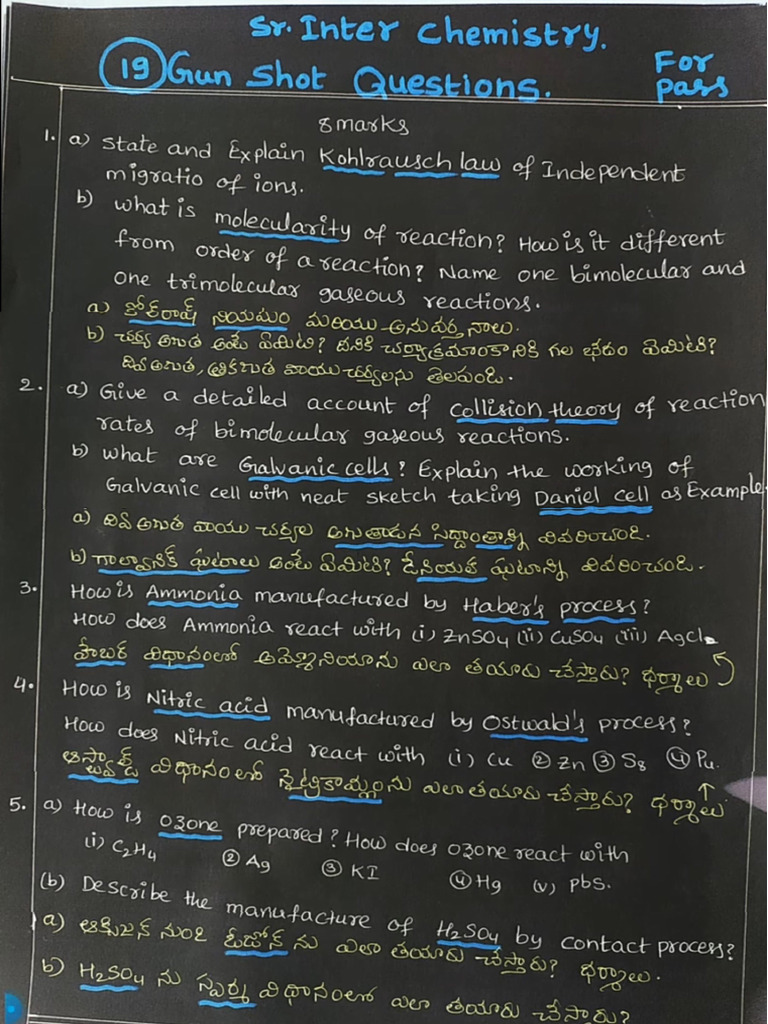 Sr. Inter Chemistry.
19 Gun Shot Questions. For pass
8 marks
1. a) State and Explain Kohlrausch law of Independent
migratio of ions.
b) what is molecularity of reaction? How is it different
from order of a reaction? Name one bimolecular and
one trimolecular gaseous reactions.
a) కోల్‌రాష్ నియమం మరియు అనువర్తనాలు.
b) చర్య అణుత అంటే ఏమిటి? దీనికి చర్యాక్రమాంకానికి గల భేదం ఏమిటి?
ద్వి అణుత, త్రికణుత వాయుచర్యలను తెలపండి.
2. a) Give a detailed account of collision theory of reaction
rates of bimolecular gaseous reactions.
b) what are Galvanic cells? Explain the working of
Galvanic cell with neat sketch taking Daniel cell as Example.
a) ద్వి అణుత వాయు చర్యల అణుతాడన సిద్దాంతాన్ని వివరించండి.
b) గాల్వానిక్ ఘటాలు అంటే ఏమిటి? డేనియల్ ఘటాన్ని వివరించండి.
3. How is Ammonia manufactured by Haber's process?
How does Ammonia react with (i) ZnSO4 (ii) CuSO4 (iii) AgCl.
హేబర్ విధానంలో అమ్మోనియాను ఎలా తయారు చేస్తారు? ధర్మాలు
4. How is Nitric acid manufactured by Ostwald's process?
How does Nitric acid react with (i) Cu ② Zn ③ S8 ④ Pu.
ఆస్వాల్డ్ విధానంలో నైట్రికామ్లంను ఎలా తయారు చేస్తారు? ధర్మాలు
5. a) How is ozone prepared? How does ozone react with
(i) C2H4 ② Ag ③ KI ④ Hg (v) PbS.
(b) Describe the manufacture of H2SO4 by contact process?
a) ఆక్సిజన్ నుండి ఓజోన్ ను ఎలా తయారు చేస్తారు? ధర్మాలు.
b) H2SO4 ను స్పర్శ విధానంలో ఎలా తయారు చేస్తారు?